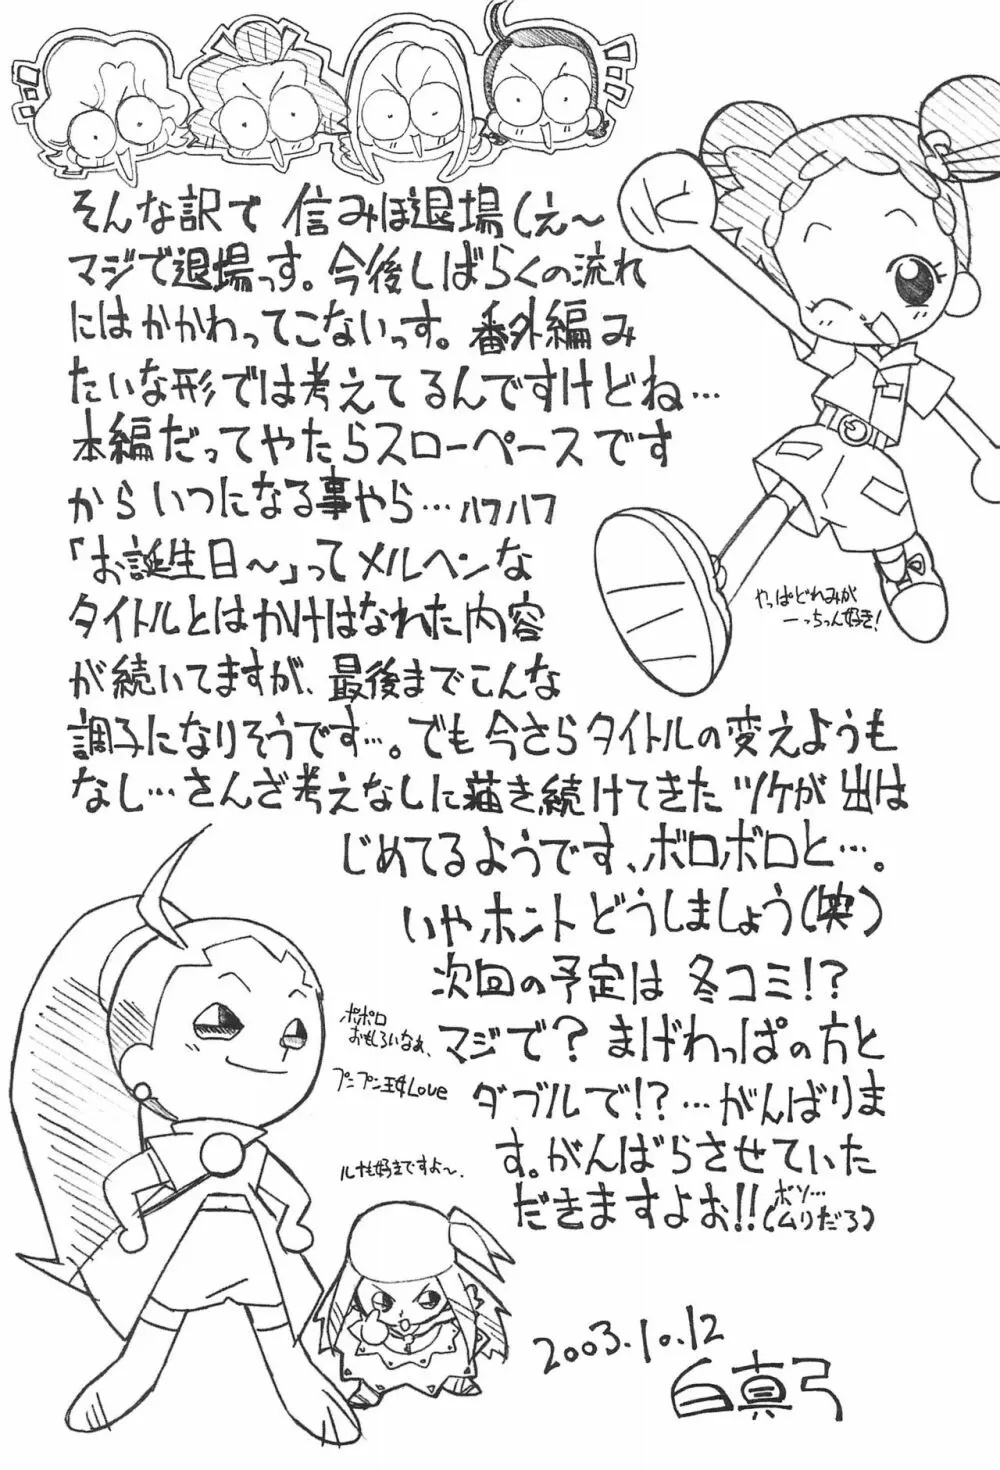 そんな訳で 信みほ退場しえ〜
マジで退場っす。今後しばらくの流れ
にはかかわってこないっす。番外編み
たいな形では考えてるんですけどね…
本編だってやたらスローペースです
から いつになる事やら…ハフハフ
「お誕生日〜」ってメルヘンな
タイトルとはかけはなれた内容
が続いてますが、最後までこんな
調子になりそうです…。でも今さらタイトルの変えようも
なし…さんざ考えなしに描き続けてきたツケが出は
じめてるようです、ボロボロと…。
いやホントどうしましょう(笑)
次回の予定は 冬コミ!?
マジで? まげわっぱの方と
ダブルで!?…がんばりま
す。がんばらさせていた
だきますよお!!(ボソ…
ムリだろ)
やっぱどれみが
一っちゃん好き!
ポポロ
おもしろいなぁ、
プニプン王女Love
ルナも好きですよ〜.
2003.10.12
白真弓